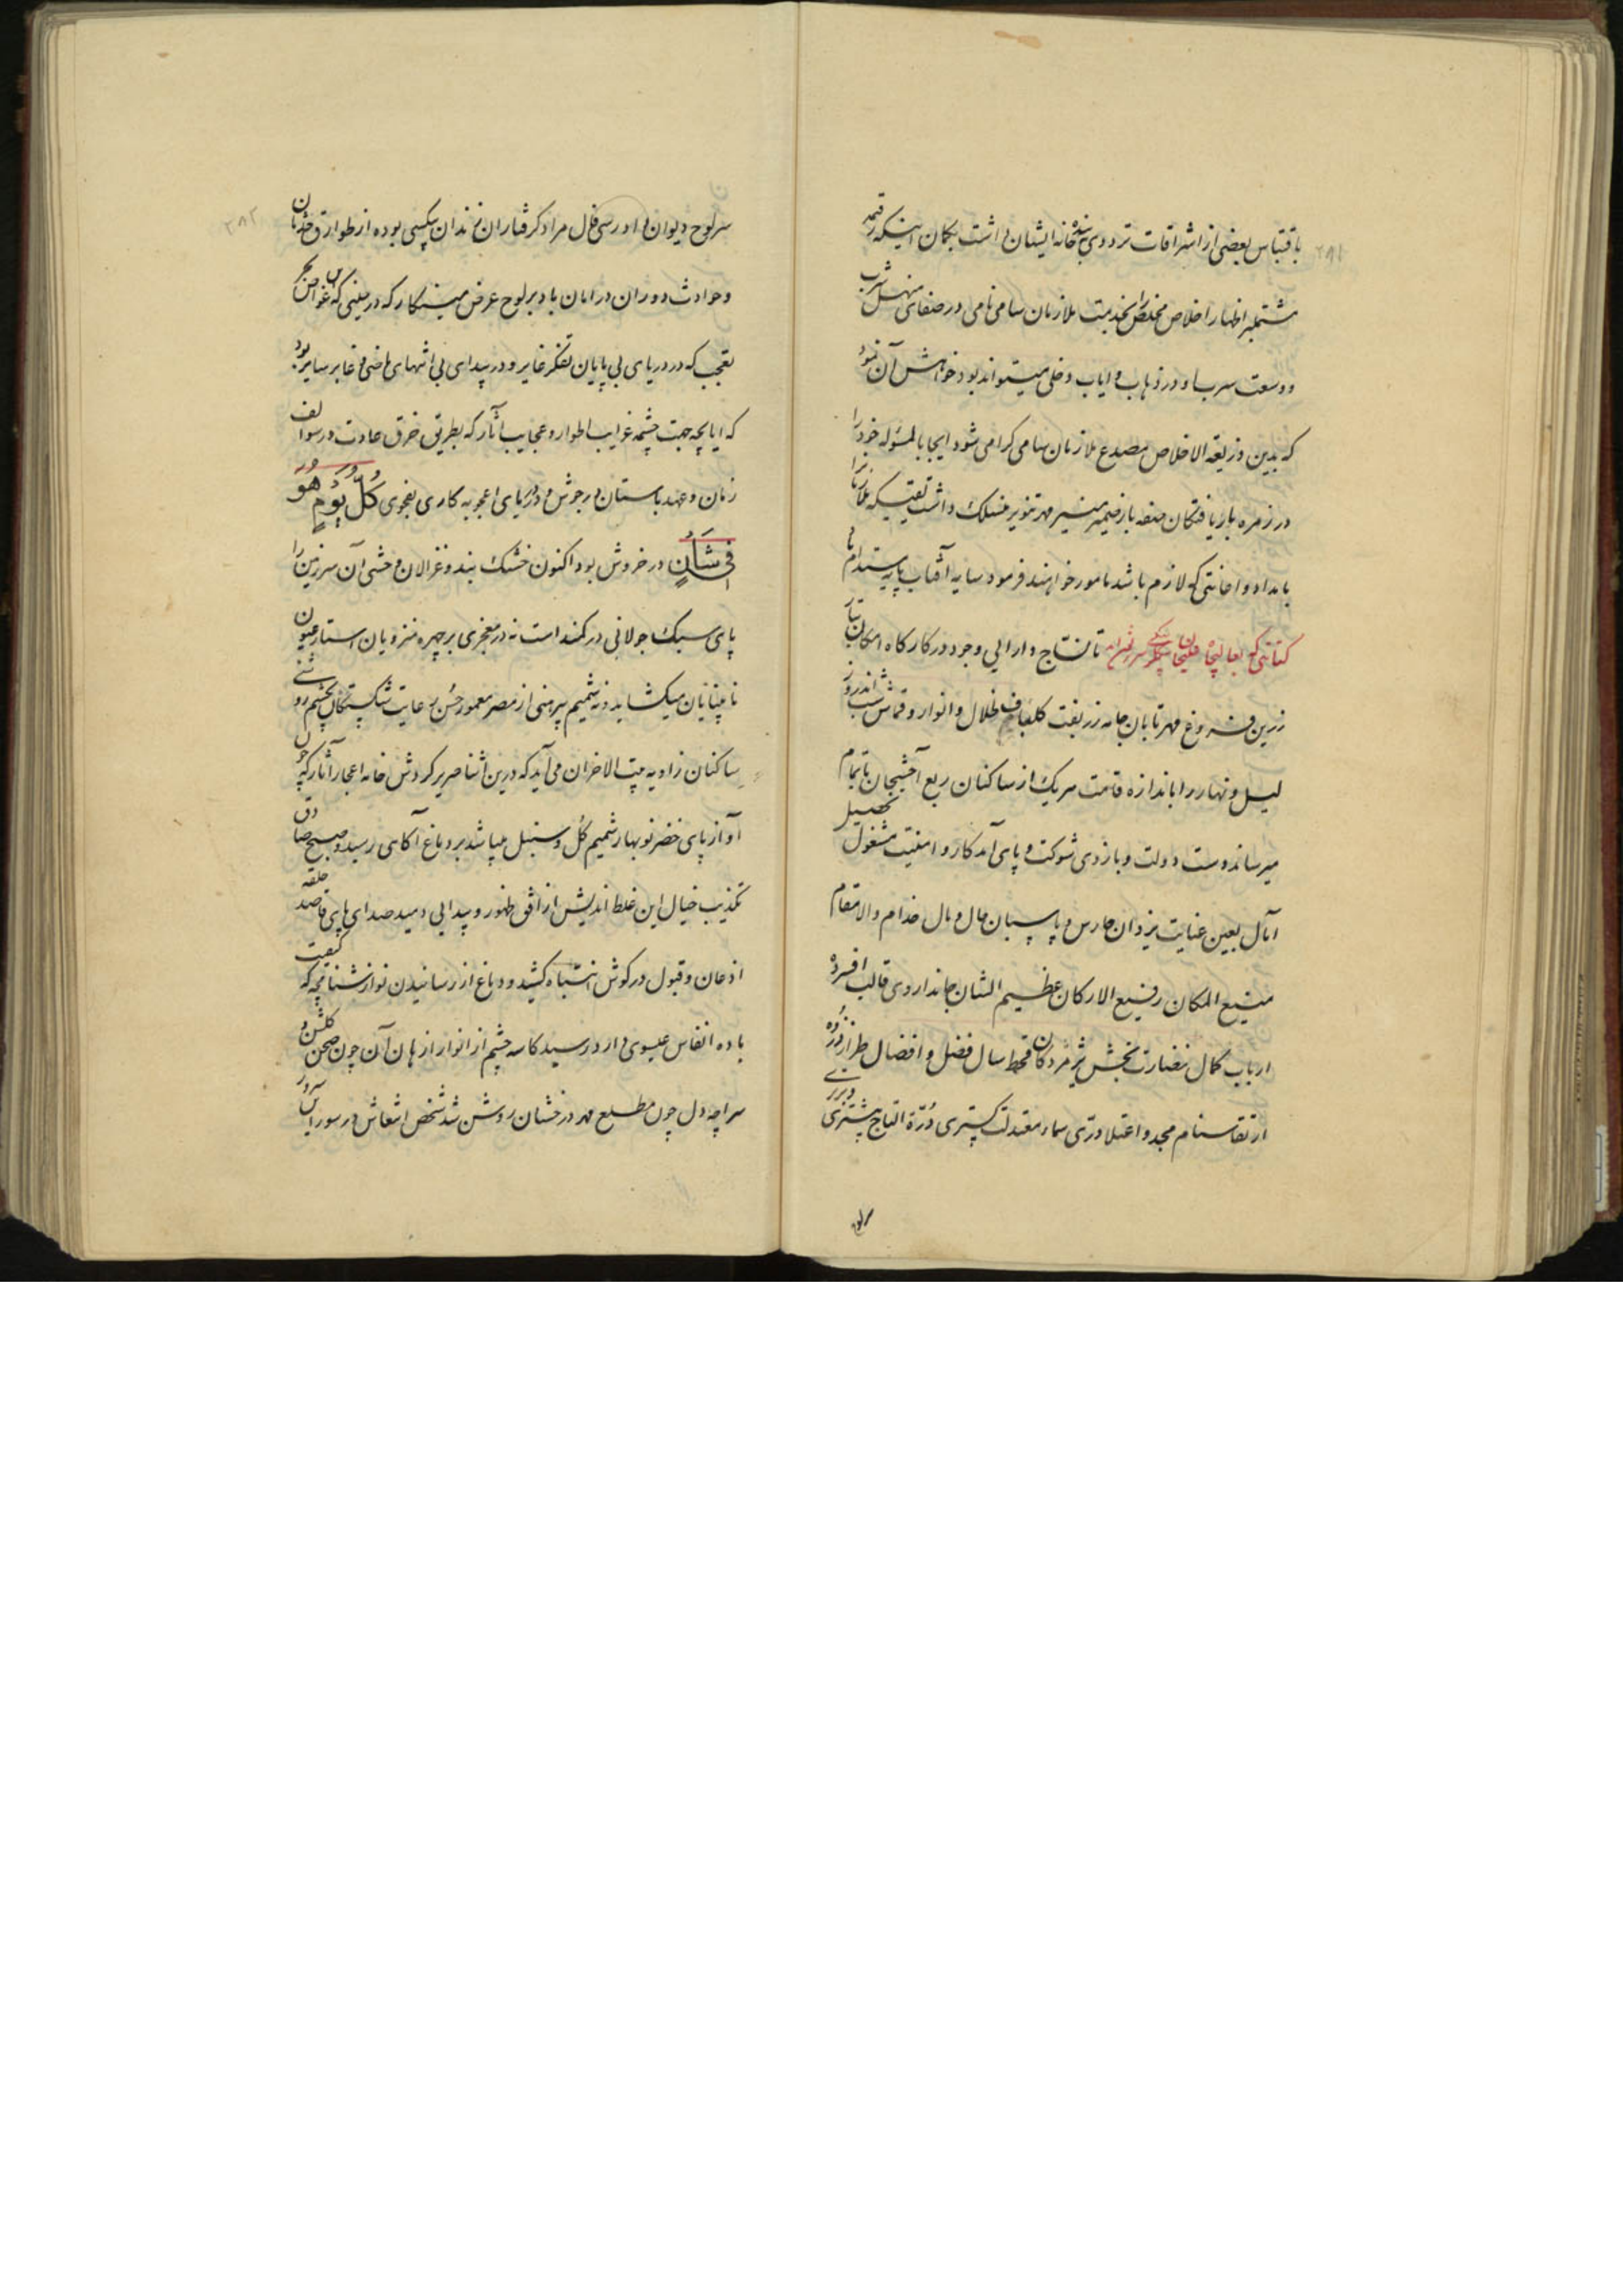 باقتباس بعضی از اشراقات تردد وی بنده خانه ایشان داشت بگمان اینکه رقیمه
مشتملبر اظهار اخلاص مخلص را بخدمت ملازمان سامی نامی در صفای منهل شرب
و وسعت سرب او در ذهاب و ایاب دخلی میتواند بود خواهش آن نمود
که بدین ذریعة الاخلاص مصدع ملازمان سامی کرامی شود ایجابا لمسئوله خود را
در زمره باریافتکان صفه بار ضمیر منیر مهر تنویر منسلک داشت تقیکه ملازمان
بامداد و اعانتی که لازم باشد مامور خواهند فرمود سایه آفتاب پایه مستدام باد
کتابتی که بعالیجاه نوشته شد تا نساج دارایی وجود در کارکاه امکان بتار
زرین فروغ مهر تابان جامه زربفت کلبافی ظلال و انوار و قماش شب اندر روز
لیل و نهار را باندازه قامت هر یک از ساکنان ربع آخشیجان باتمام
میرساند دست دولت و بازوی شوکت و پای آمد کار و امنیت مشغول تحصیل
آمال بعین عنایت یزدان حارس و پاسبان حال و مال خدام والا مقام
منیع المکان رفیع الارکان عظیم الشان جاندار وی قالب افسرده
ارباب کمال نضارت بخش پژمردکان قحط سال فضل و افضال طراز ذروه
ارتقا سنام مجد و اعتلا درّی سماء معدلت کستری دُرّة التاج مشتری
سرلوح
سرلوح دیوان دادرسی فال مراد کرفتاران زندان بیکسی بوده از طوارق حدثان
و حوادث دوران در امان باد بر لوح عرض مینکارد که در حینی که غواص بحر
تعجب که در دریای بی پایان تفکر غایر و در بیدای بی انتهای ماضی و غابر سایر بود
که ایا بچه جهت چشمه غرایب اطوار و عجایب آثار که بطریق خرق عادت در سوالف
زمان و عهد باستان در جوش و دریای اعجوبه کاری بفحوی کُلَّ یَوْمٍ هُوَ
فِی شَأْنٍ در خروش بود اکنون خشک بند و غزالان وحشی آن سرزمین را
پای سبک جولانی در کمند است نه در معجزی بر چهره منزویان استار عیون
نابینایان میکشاید و نه شمیم پیرهنی از مصر معمور حُسن رعایت شکستکان بچشم روشنی
ساکنان زاویه بیت الاحزان می آید که درین اثنا صریر کردش خامه اعجاز آثار که چون
آواز پای خضر نوبهار شمیم کُل و سنبل میپاشد بر دماغ آکاهی رسید و صبح صادق
تکذیب خیال این غلط اندیش از افق ظهور و پیدایی دمید صدای پای قاصد حلقه
اذعان و قبول در کوش انتباه کشید و دماغ از رسانیدن نوازشنامچه که کیفیت
باده انفاس عیسوی دارد رسید کاسه چشم از انوار ازهان آن چون صحن کلشن و
سراچه دل چون مطلع مهر درخشان روشن شد شخص انتعاش در سور این سرور